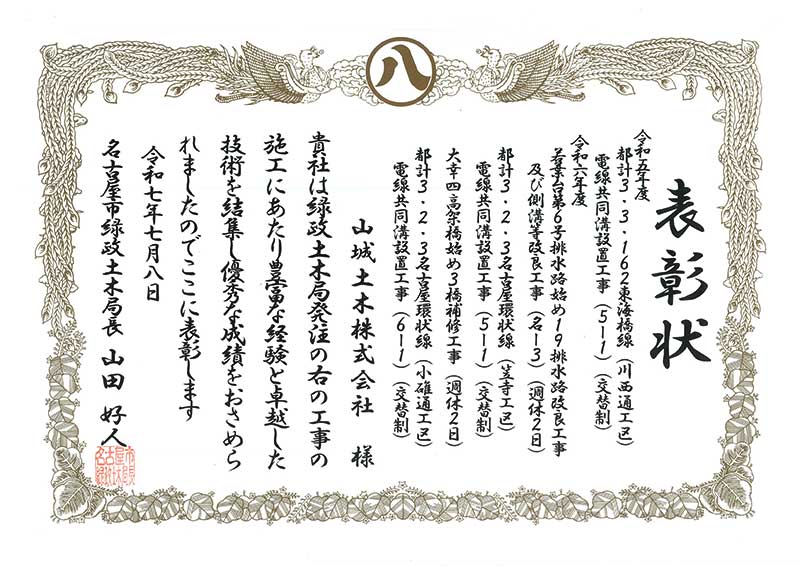 八
表彰状
令和五年度
都計3・3・162東海橋線（川西通工区）
電線共同溝設置工事（5－1）（交替制）
令和六年度
若葉台第6号排水路始め19排水路改良工事
及び側溝等改良工事（名－3）（週休2日）
都計3・2・3名古屋環状線（笠寺工区）
電線共同溝設置工事（5－1）（交替制）
大幸四高架橋始め3橋補修工事（週休2日）
都計3・2・3名古屋環状線（小碓通工区）
電線共同溝設置工事（6－1）（交替制）
山城土木株式会社 様
貴社は緑政土木局発注の右の工事の
施工にあたり豊富な経験と卓越した
技術を結集し優秀な成績をおさめら
れましたのでここに表彰します
令和七年七月八日
名古屋市緑政土木局長 山田 好人